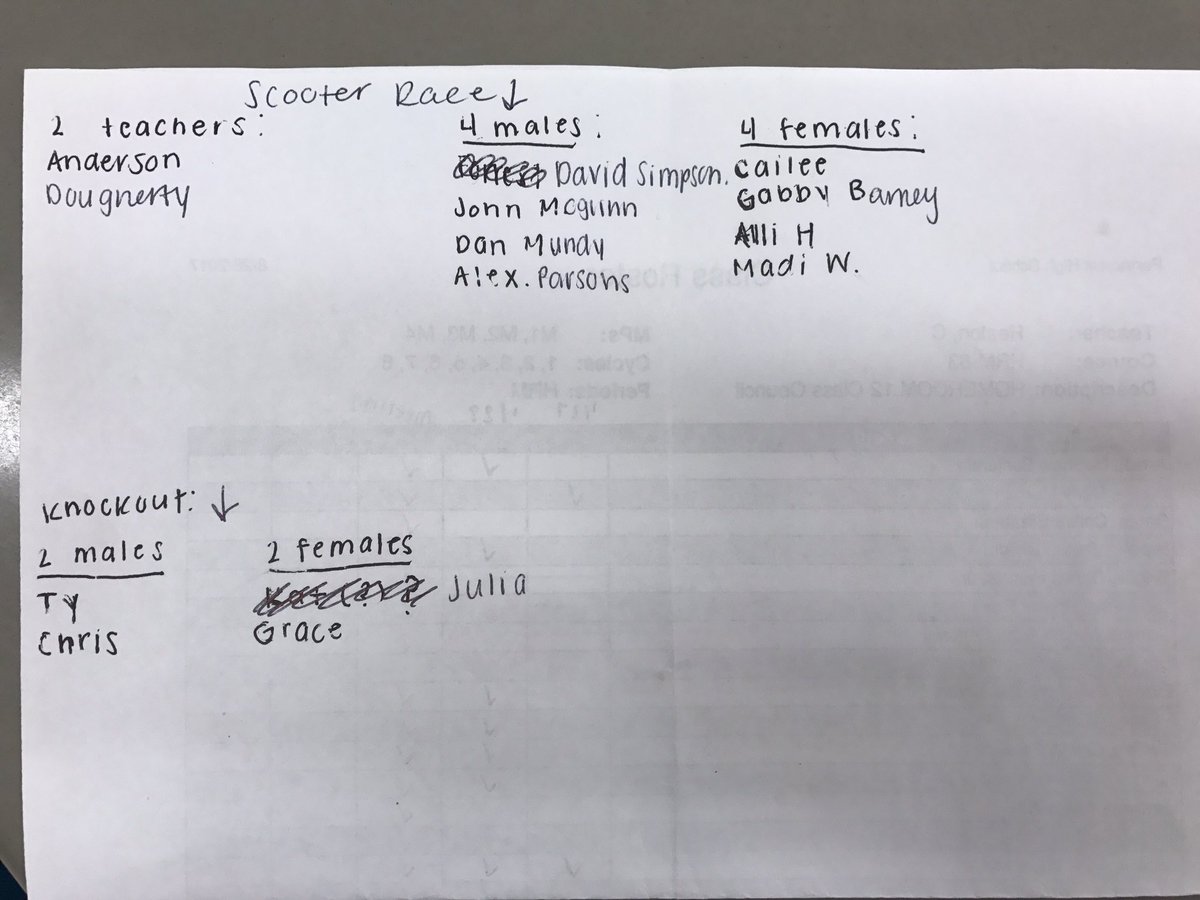 Scooter Race↓
2 teachers:
Anderson
Dougherty
4 males:
David Simpson.
John Mcglinn
Dan Mundy
Alex. Parsons
4 females:
Cailee
Gabby Barney
Alli H
Madi W.
Knockout: ↓
2 males
Ty
Chris
2 females
Julia
Grace